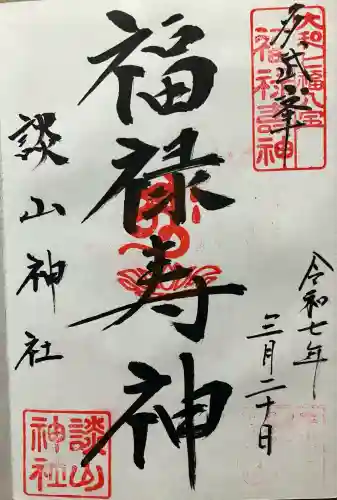 多武峯
大和七福八宝
福禄寿神
令和七年
三月二十日
福禄寿神
談山神社
談山
神社